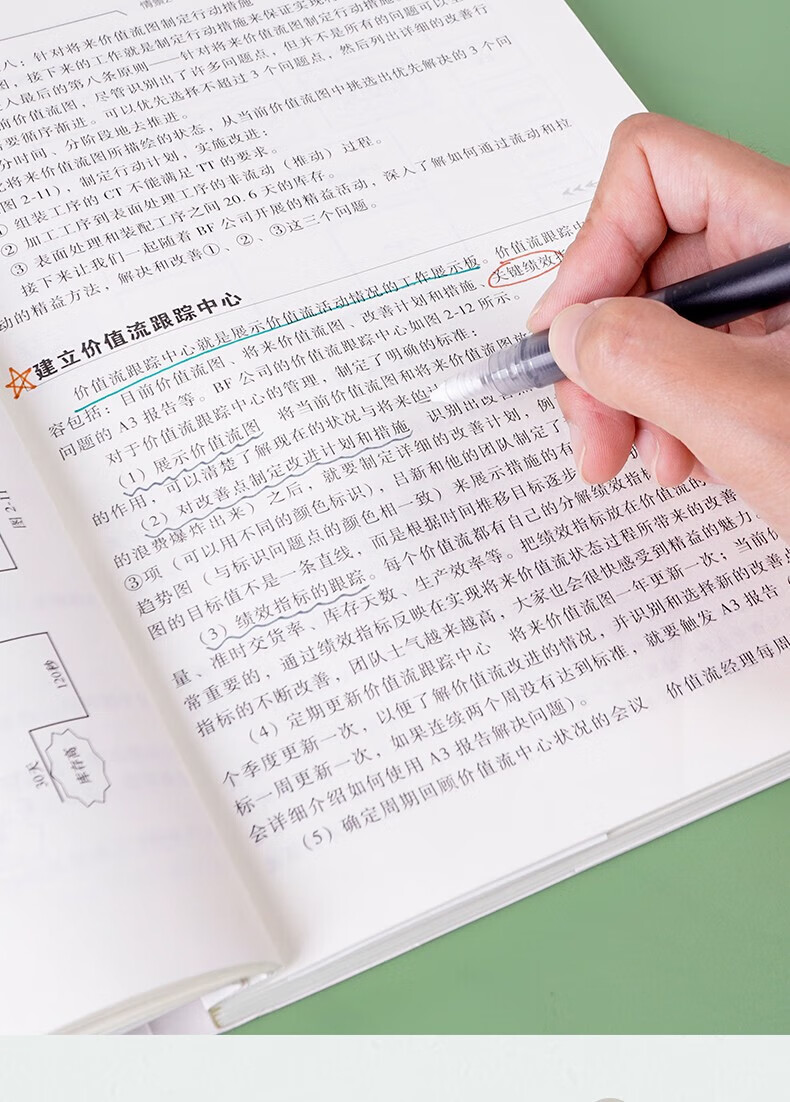 八：针对将来价值流图制定行动措施
图，接下来的工作就是制定行动措施来保证实现
入最后的第八条原则——针对将来价值流图制定行动措施
前价值流图，尽管识别出了许多问题点，但并不是所有的问题可以
要循序渐进。可以优先选择不超过3个问题点，然后列出详细的改善行
分时间、分阶段地去推进。
将来价值流图所描绘的状态，从当前价值流图中挑选出优先解决的3个问
图2-11），制定行动计划，实施改进：
组装工序的CT不能满足TT的要求。
② 加工工序到表面处理工序的非流动（推动）过程。
③ 表面处理和装配工序之间20.6天的库存。
接下来让我们一起随着BF公司开展的精益活动，深入了解如何通过流动和拉
动的精益方法，解决和改善①、②、③这三个问题。
建立价值流跟踪中心
价值流跟踪中心就是展示价值流活动情况的工作展示板。价值流跟踪中
容包括：目前价值流图、将来价值流图、改善计划和措施、关键绩效指
问题的A3报告等。BF公司的价值流跟踪中心如图2-12所示。
对于价值流跟踪中心的管理，制定了明确的标准：
（1）展示价值流图 将当前价值流图和将来价值流图
的作用，可以清楚了解现在的状况与将来的
（2）对改善点制定改进计划和措施 识别出改
的浪费爆炸出来）之后，就要制定详细的改善计划，例
③项（可以用不同的颜色标识），吕新和他的团队制定了
趋势图（与标识问题点的颜色相一致）来展示措施的有
图的目标值不是一条直线，而是根据时间推移目标逐步
（3）绩效指标的跟踪。每个价值流都有自己的分解绩效指标
量、准时交货率、库存天数、生产效率等。把绩效指标放在价值流的
常重要的，通过绩效指标反映在实现将来价值流状态过程所带来的改善
指标的不断改善，团队士气越来越高，大家也会很快感受到精益的魅力
（4）定期更新价值流跟踪中心 将来价值流图一年更新一次；当前价
个季度更新一次，以便了解价值流改进的情况，并识别和选择新的改善点
标一周更新一次，如果连续两个周没有达到标准，就要触发A3报告（
会详细介绍如何使用A3报告解决问题）。
（5）确定周期回顾价值流中心状况的会议 价值流经理每周
120秒
30天